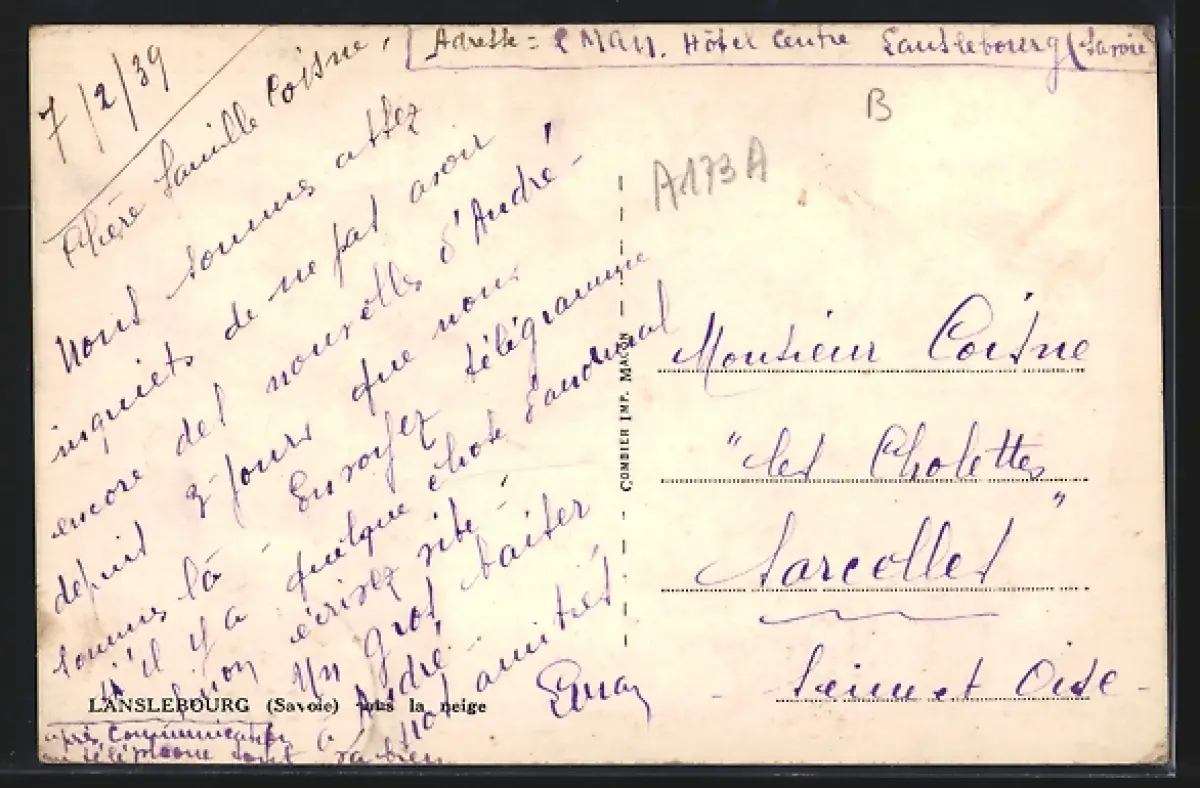 Adresse = Hôtel Centre Lanslebourg (Savoie)
7/2/39
Chère famille Coisne,
Nous sommes assez
inquiets de ne pas avoir
encore des nouvelles d'André -
depuis 3 jours que nous
sommes là - Envoyez télégramme
s'il y a quelque chose d'anormal
sinon écrivez vite -
Un gros baiser
à André -
nos amitiés
après communication
au téléphone tout va bien
LANSLEBOURG (Savoie) sous la neige
COMBIER IMP. MACON
B
A173A
Monsieur Coisne
"les Cholettes"
Sarcelles
Seine et Oise -